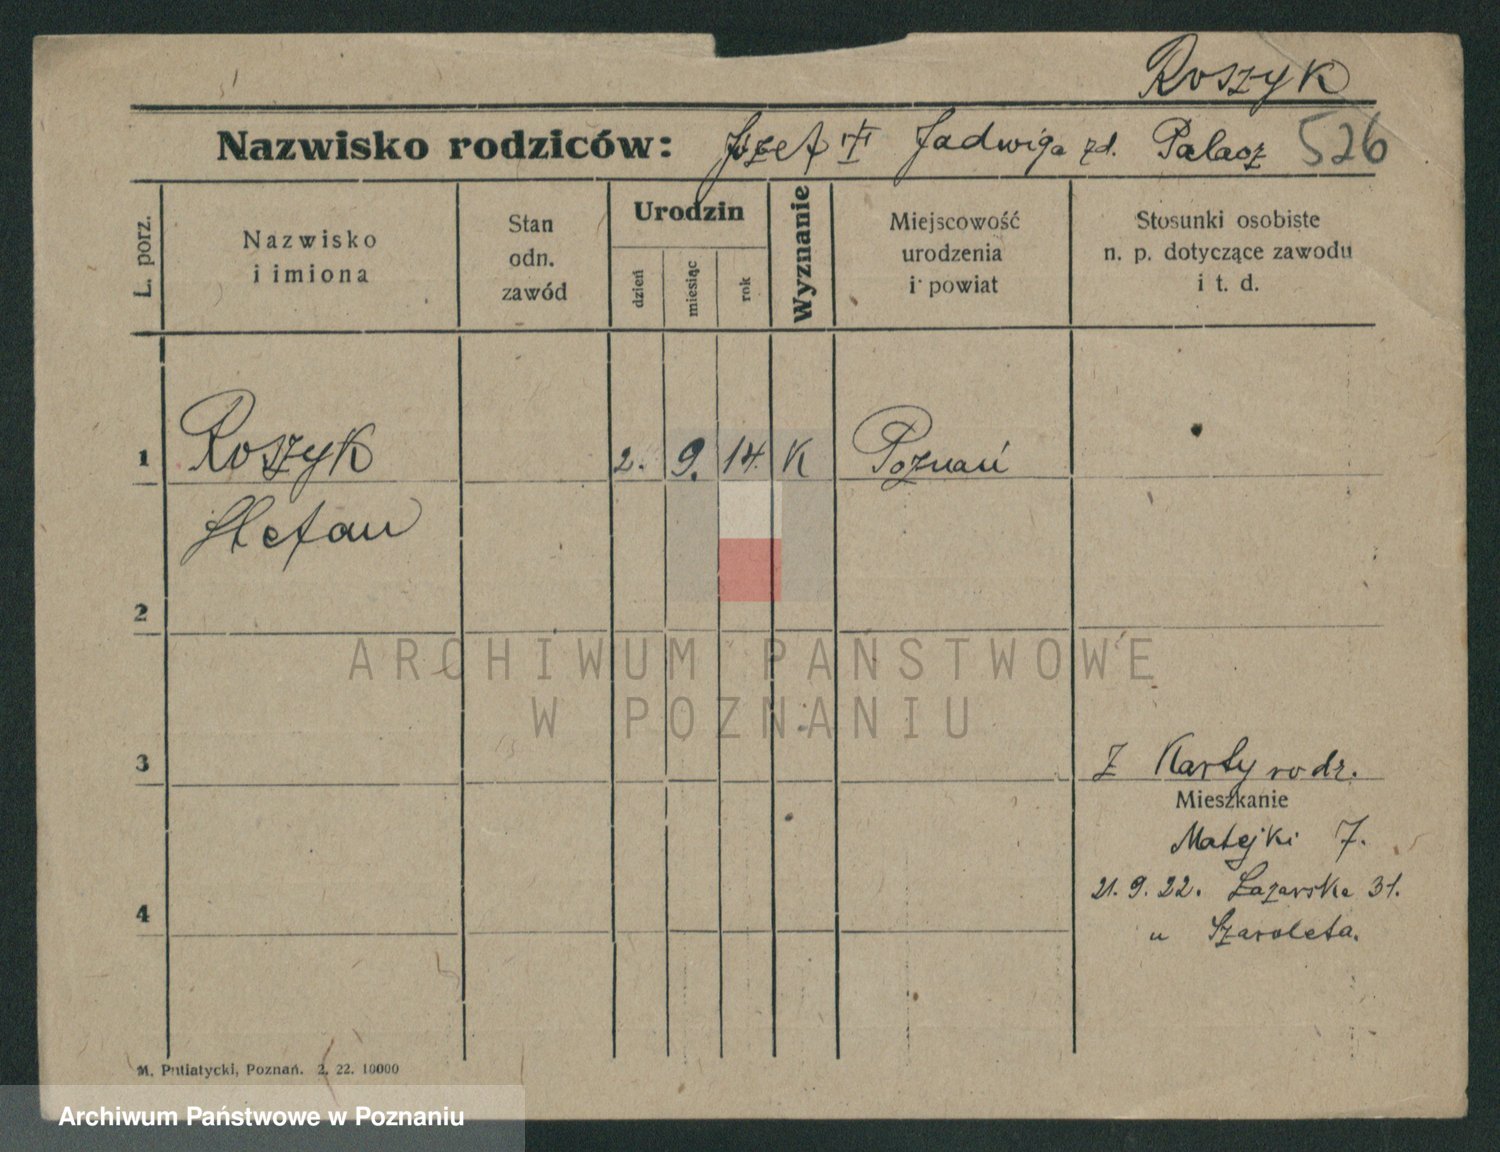 Roszyk
Nazwisko rodziców: Józef Jadwiga zd. Palacz 526
L. porz.
Nazwisko
i imiona
Stan
odn.
zawód
Urodzin
dzień
miesiąc
rok
Wyznanie
Miejscowość
urodzenia
i powiat
Stosunki osobiste
n. p. dotyczące zawodu
i t. d.
1 Roszyk 2. 9. 14. K Poznań
Stefan
2
ARCHIWUM PAŃSTWOWE
W POZNANIU
3 Z Karty rodz.
Mieszkanie
Matejki 7.
21. 9. 22. Łazarska 31.
4
u Szaroleta.
M. Putiatycki, Poznań. 2. 22. 10000
Archiwum Państwowe w Poznaniu